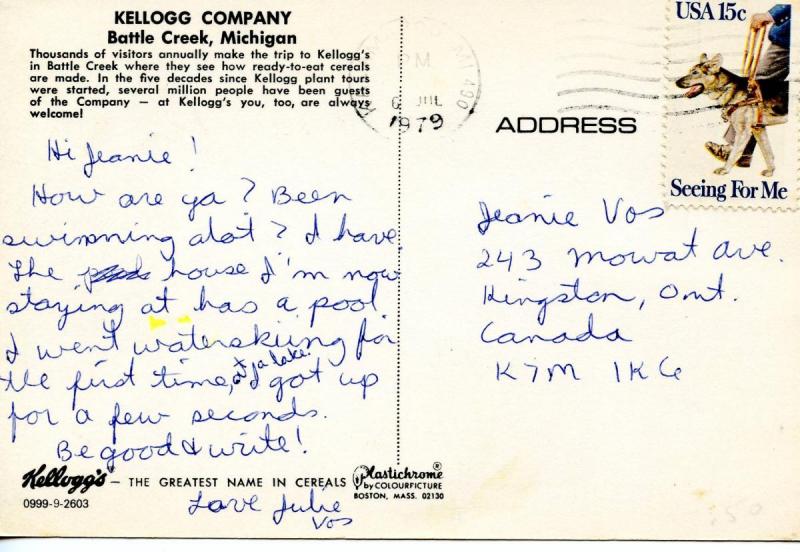 KELLOGG COMPANY
Battle Creek, Michigan
Thousands of visitors annually make the trip to Kellogg's
in Battle Creek where they see how ready-to-eat cereals
are made. In the five decades since Kellogg plant tours
were started, several million people have been guests
of the Company — at Kellogg's you, too, are always
welcome!
Hi Jeanie!
How are ya? Been
swimming alot? I have.
The house I'm now
staying at has a pool.
I went waterskiing for
the first time, at a lake. I got up
for a few seconds.
Be good & write!
Kellogg's — THE GREATEST NAME IN CEREALS
0999-9-2603
Love Julie
Vos
Plastichrome®
by COLOURPICTURE
BOSTON, MASS. 02130
PM
6 JUL
1979
490
USA 15c
Seeing For Me
ADDRESS
Jeanie Vos
243 Mowat Ave.
Kingston, Ont.
Canada
K7M 1K6
.50